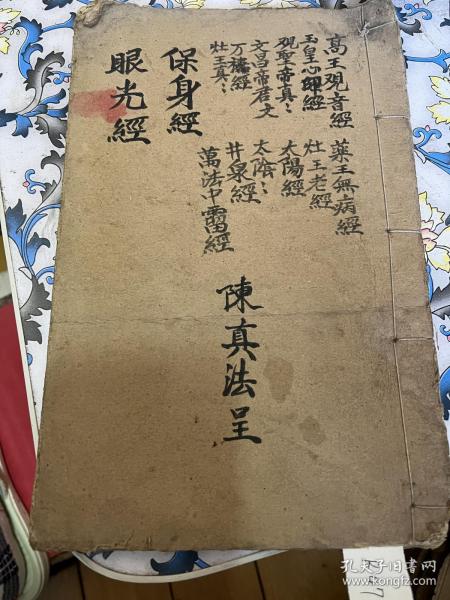 高王观音經
玉皇心印經
观聖帝真：
文昌帝君文
万穗經
灶王真：
藥王無病經
灶王老經
太陽經
太陰：
井泉經
萬法中雷經
保身經
眼光經
陳真法呈
孔夫子旧书网